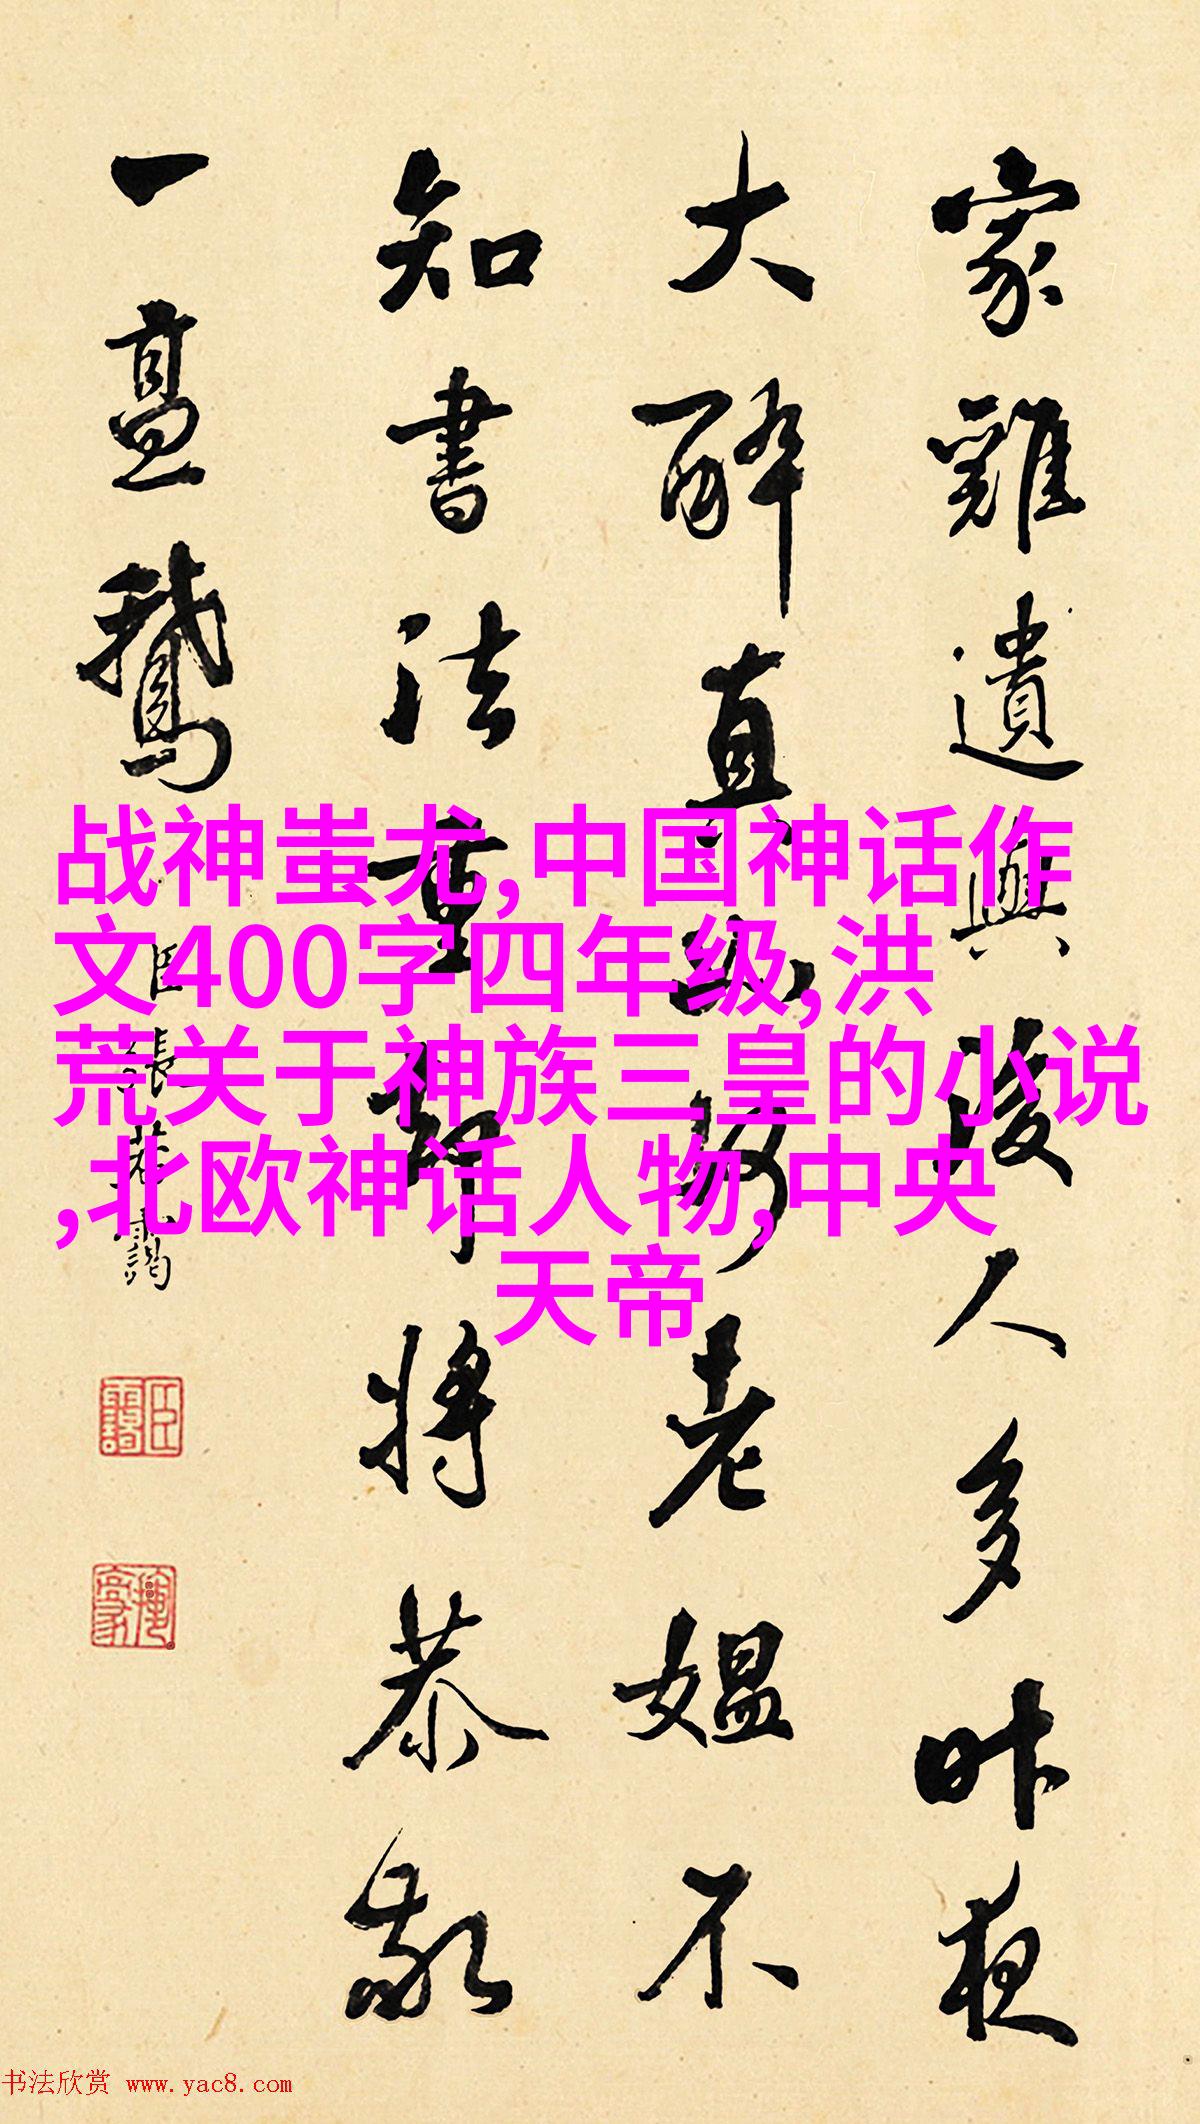 家雞遺與後人多昨夜
大醉直老媼不
知書法重將恭敬
一鵝
臣張
战神蚩尤,中国神话作
文400字四年级,洪
荒关于神族三皇的小说
,北欧神话人物,中央
天帝
书法欣赏 www.yac8.com